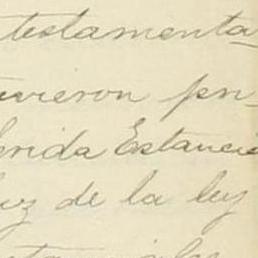 testamenta
uvieron pri
erida Estanci
uz de la ley